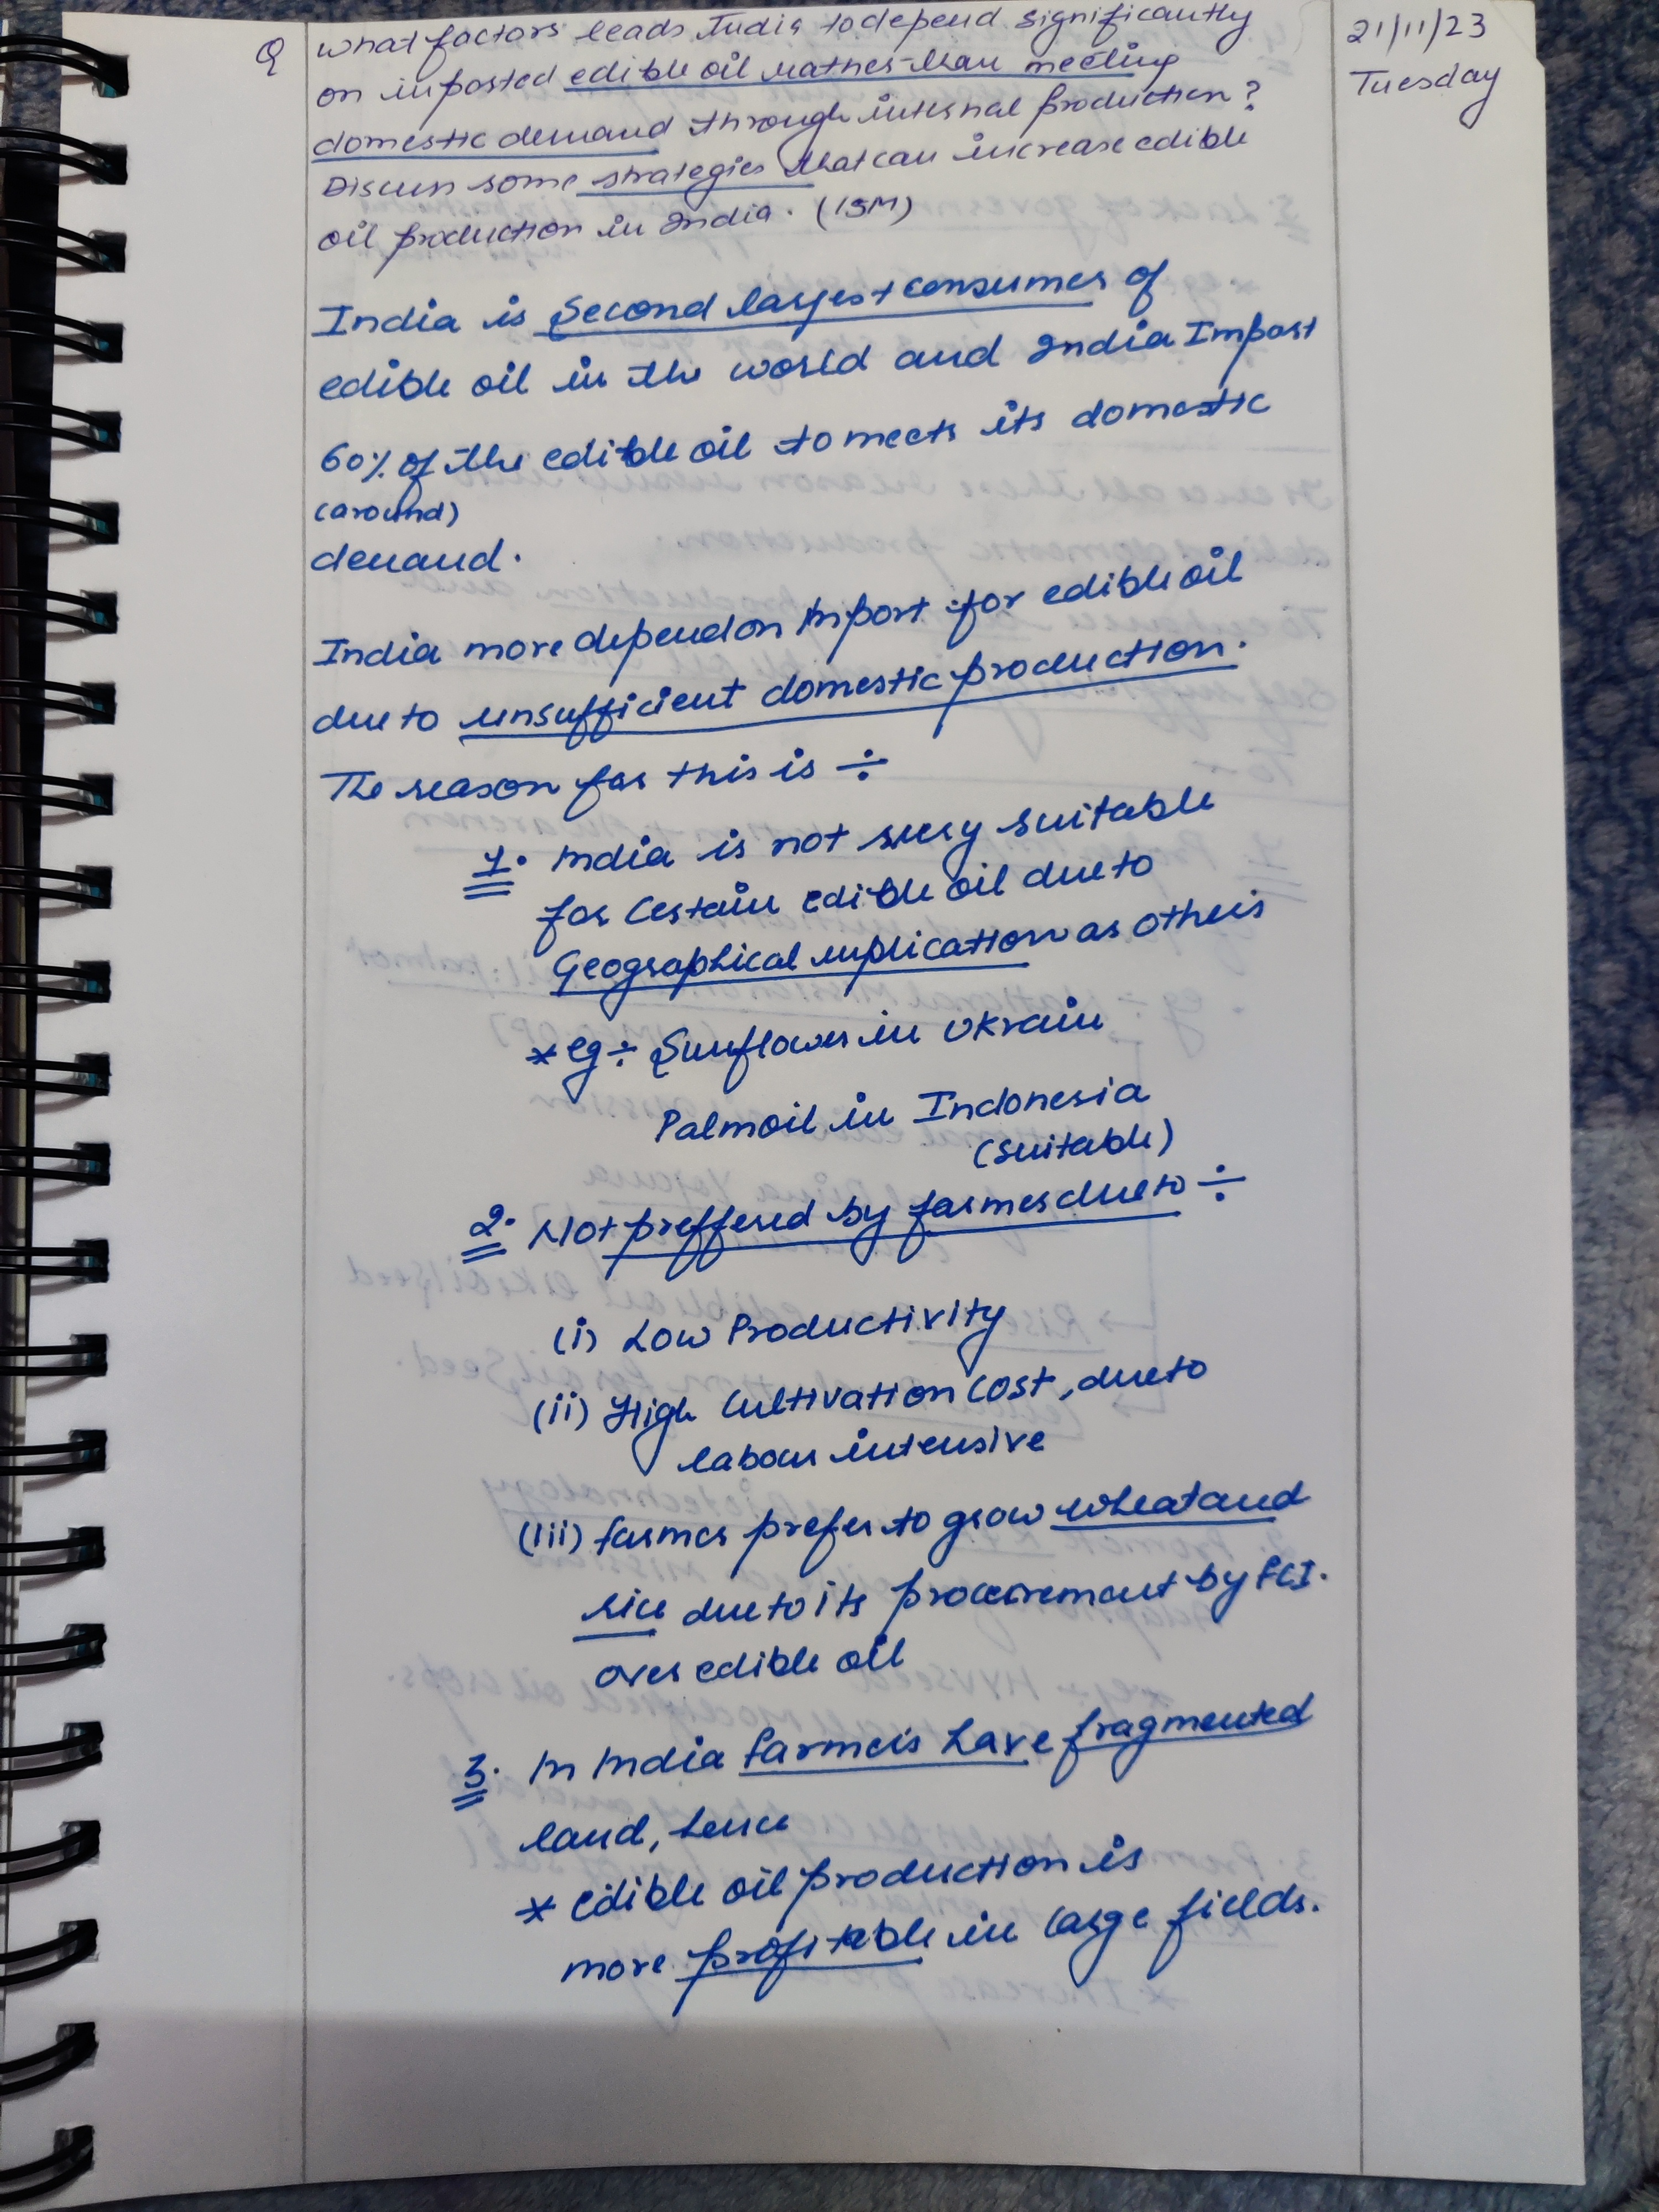 21/11/23
Tuesday
Q what factors leads India to depend significantly
on imported edible oil rather than meeting
domestic demand through internal production?
Discuss some strategies that can increase edible
oil production in India. (15M)
India is Second largest consumer of
edible oil in the world and India Import
60% of the edible oil to meets its domestic
(around)
demand.
India more depend on Import for edible oil
due to unsufficient domestic production.
The reason for this is ÷
1. India is not very suitable
for Certain edible oil due to
Geographical implication as others
* eg ÷ Sunflower in Ukrain
Palmoil in Indonesia
(suitable)
2. Not preffered by farmer due to ÷
(i) Low Productivity
(ii) High Cultivation Cost, due to
labour intensive
(iii) farmer prefer to grow wheat and
rice due to its procurement by FCI.
over edible oil
3. In India farmers have fragmented
land, hence
* edible oil production is
more profitable in large fields.